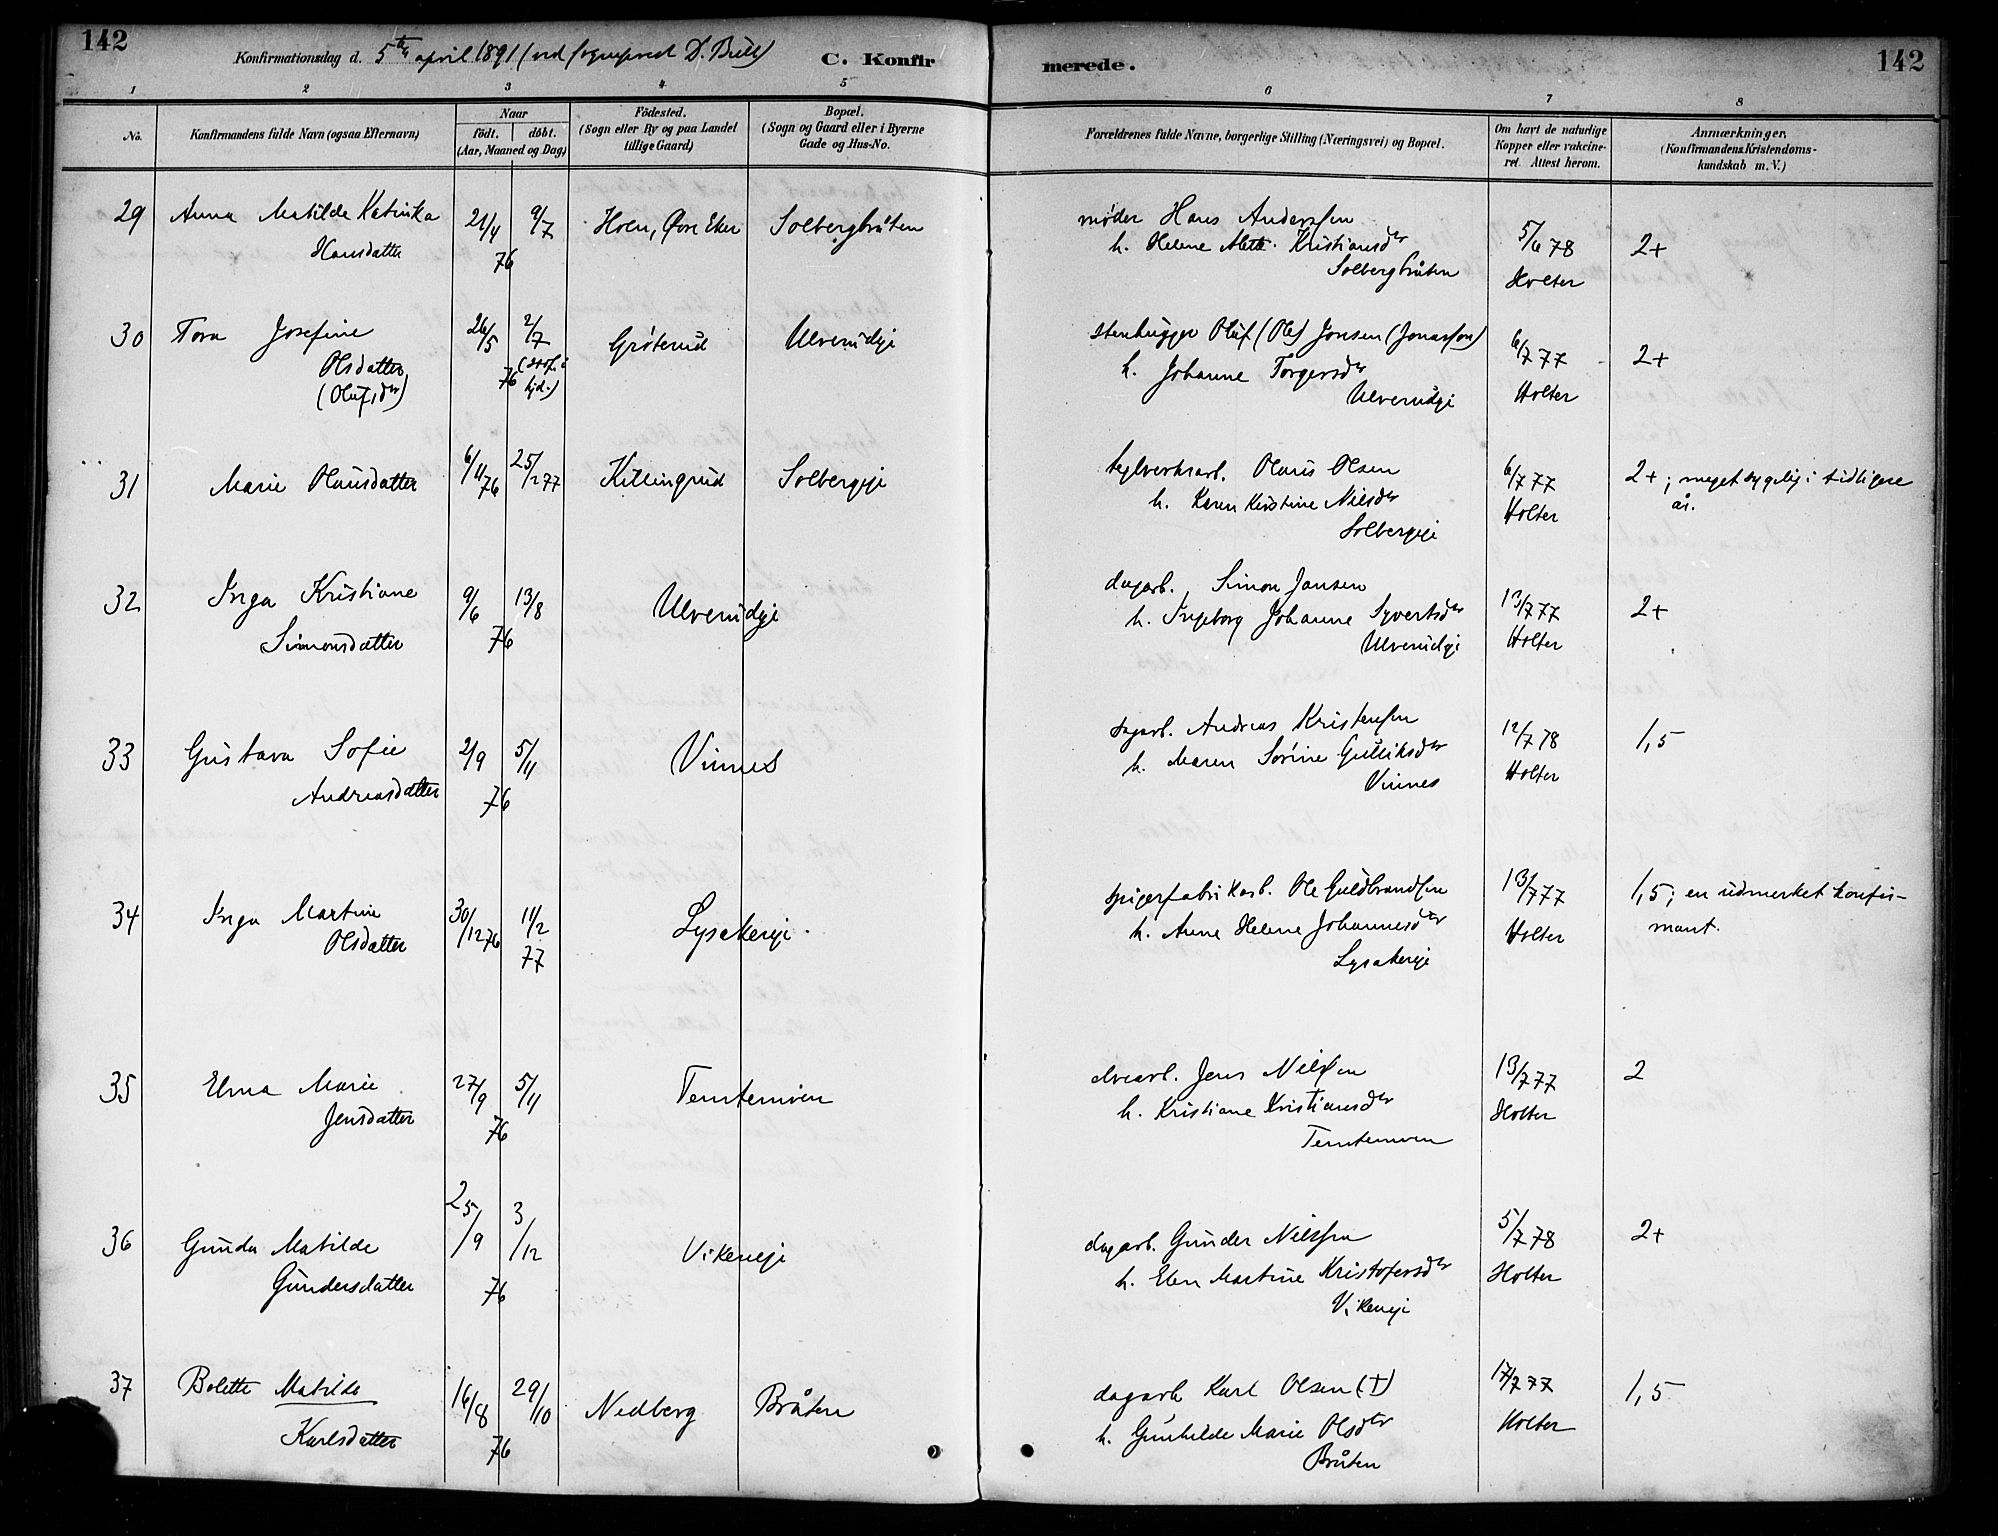 142
Konfirmationsdag d. 5te april 1891 (ved sognepræst D. Bull)
C. Konfir
merede.
142
1 2 3 4 5 6 7 8
No.
Konfirmandens fulde Navn (ogsaa Efternavn)
Naar
født. døbt.
(Aar, Maaned og Dag)
Födested.
(Sogn eller By og paa Landet
tillige Gaard)
Bopæl.
(Sogn og Gaard eller i Byerne
Gade og Hus-No.
Forældrenes fulde Navne, borgerlige Stilling (Næringsvei) og Bopæl.
Om havt de naturlige
Kopper eller vakcine-
ret. Attest herom.
Anmærkninger,
(Konfirmandens Kristendoms-
kundskab m. V.)
29 Anna Matilde Katinka 21/4 9/7 Horn, Øvre Eker Solbergbråten
Hansdatter 76
møder Hans Anderssen 5/6 78 2+
h. Helene Mette Kristiansdtr
Solbergbråten Holter
30 Tora Josefine 26/5 2/7 Grøterud Ulverudeje
Olsdatter 76
(Olufsdtr)
Stenhugger Oluf (Ole) Jonsen (Jonassen) 6/7 77 2+
h. Johanne Torgersdtr
Ulverudeje Holter
31 Marie Olausdatter 6/11 76 25/2 77 Killingrud Solbergeje
teglverksarb. Olaus Olsen 6/7 77 2+; meget sygelig i tidligere
h. Karen Kristine Nilsdtr Holter år.
Solbergeje
32 Inga Kristiane 9/6 13/8 Ulverudeje
Simonsdatter 76
dagarb. Simon Jansen 13/7 77 2+
h. Ingeborg Johanne Syvertsdtr
Ulverudeje Holter
33 Gustava Sofie 2/9 5/11 Vinnes
Andreasdatter 76
dagarb. Andreas Kristensen 12/7 78 1,5
h. Maren Sørine Gulliksdtr Holter
Vinnes
34 Inga Martine 30/12 76 11/2 77 Lysakereje.
Olsdatter
spigerfabrikarb. Ole Guldbrandsen 13/7 77 1,5; en udmerket konfir-
h. Anne Helene Johannesdtr Holter mant.
Lysakereje
35 Elma Marie 27/9 5/11
Jensdatter 76
elvearb. Jens Nilssen 13/7 77 2
h. Kristiane Kristiansdtr Holter
36 Gunda Matilde 25/9 3/12 Vikeneje
Gundersdatter 76
dagarb. Gunder Nilssen 5/7 78 2+
h. Elen Martine Kristofersdtr Holter
Vikeneje
37 Bolette Matilde 16/8 29/10 Nedberg Bråten
Karlsdatter 76
dagarb Karl Olsen (†) 17/7 77 1,5
h. Gunhilde Marie Olsdtr Holter
Bråten